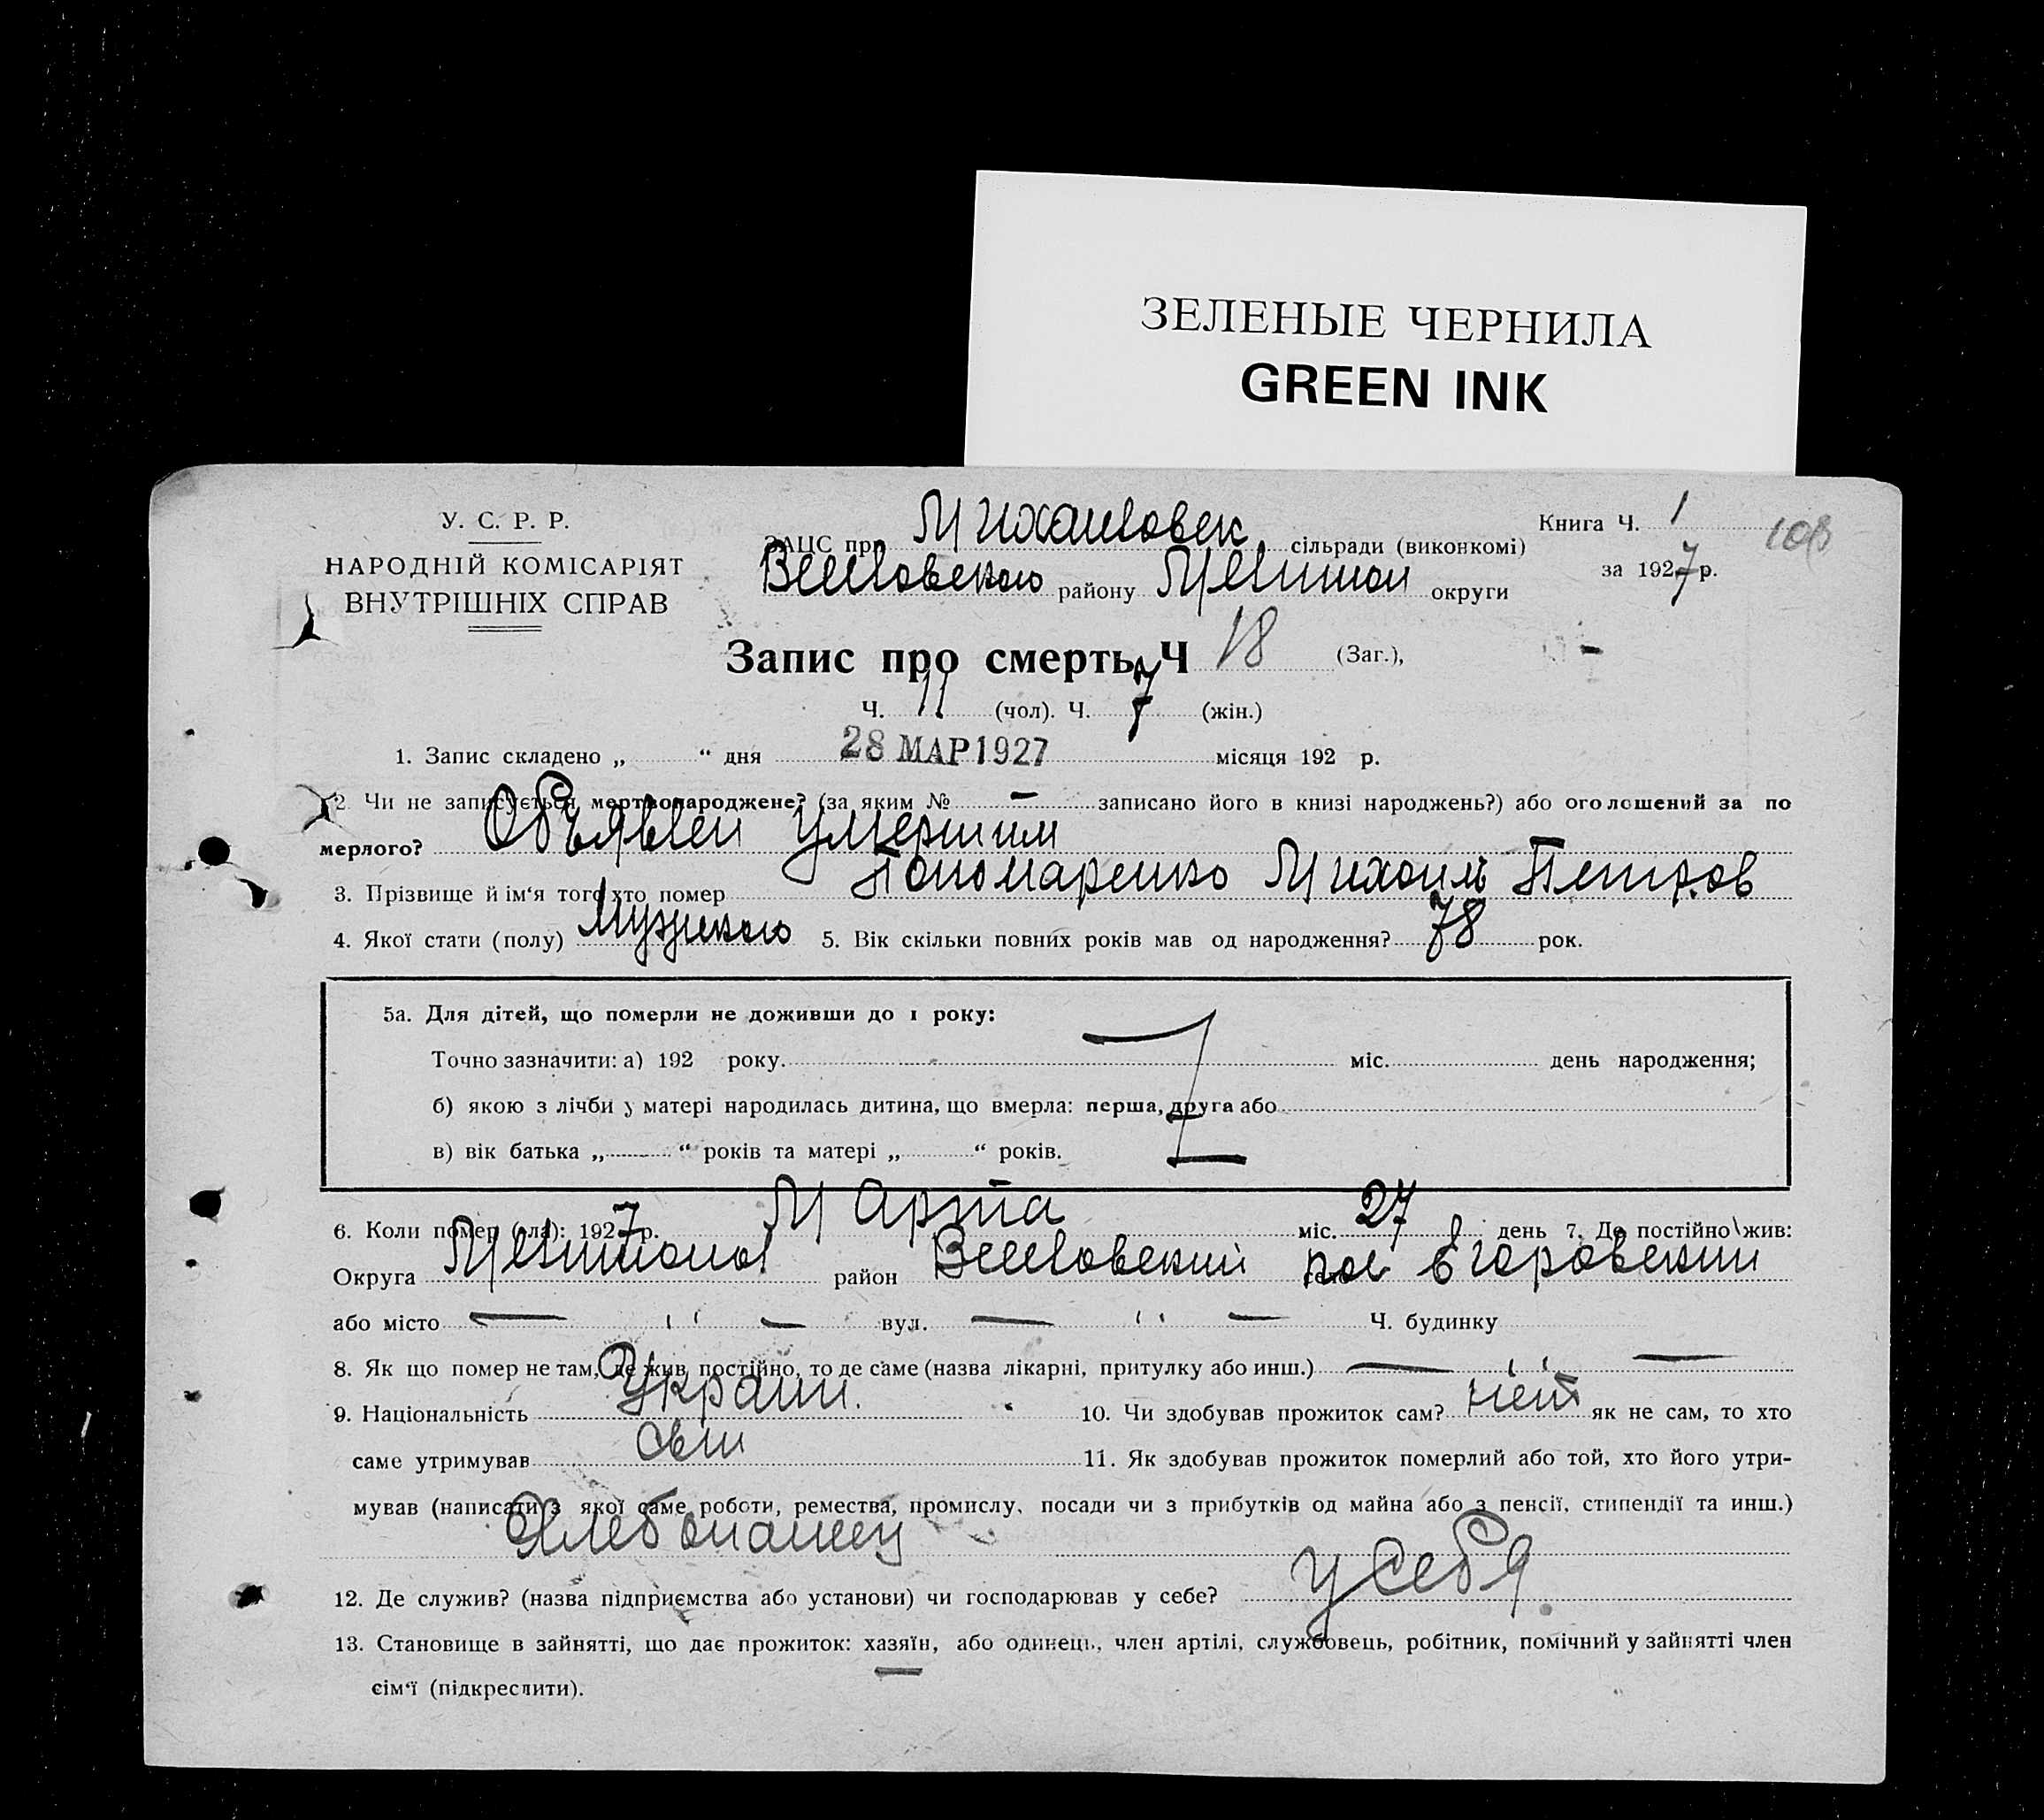 ЗЕЛЕНЫЕ ЧЕРНИЛА
GREEN INK
У. С. Р. Р.
НАРОДНІЙ КОМІСАРІЯТ
ВНУТРІШНІХ СПРАВ
ЗАЦС при Михайловск сільради (виконкомі)
Веселовского району Мелитоп округи
Книга Ч. 1
108
за 1927 р.
Запис про смерть Ч 18 (Заг.),
Ч. 11 (чол). Ч. 7 (жін.)
1. Запис складено „ “ дня 28 МАР 1927 місяця 192 р.
2. Чи не записується мертвонароджене? (за яким № – записано його в книзі народжень?) або оголошений за по
мерлого? Объявлен умершим
3. Прізвище й ім‘я того хто помер Пономаренко Михаил Петров
4. Якої стати (полу) Мужского 5. Вік скільки повних років мав од народження? 78 рок.
5а. Для дітей, що померли не доживши до 1 року:
Точно зазначити: а) 192 року. міс. день народження;
б) якою з лічби у матері народилась дитина, що вмерла: перша, друга або
в) вік батька „ “ років та матері „ “ років.
6. Коли помер (ла): 1927 р. Марта міс. 27 день 7. Де постійно жив:
Округа район Веселовский село пос Егоровский
або місто — " — вул. — " — Ч. будинку
8. Як що помер не там, де жив постійно, то де саме (назва лікарні, притулку або инш.) — " —
9. Національність Украин. 10. Чи здобував прожиток сам? нет як не сам, то хто
саме утримував сын 11. Як здобував прожиток померлий або той, хто його утри-
мував (написати з якої саме роботи, ремества, промислу, посади чи з прибутків од майна або з пенсії, стипендії та инш.)
Хлебопашец
12. Де служив? (назва підприємства або установи) чи господарював у себе? у себя
13. Становище в зайнятті, що дає прожиток: хазяїн, або одинець, член артілі, службовець, робітник, помічний у зайнятті член
сім‘ї (підкреслити).